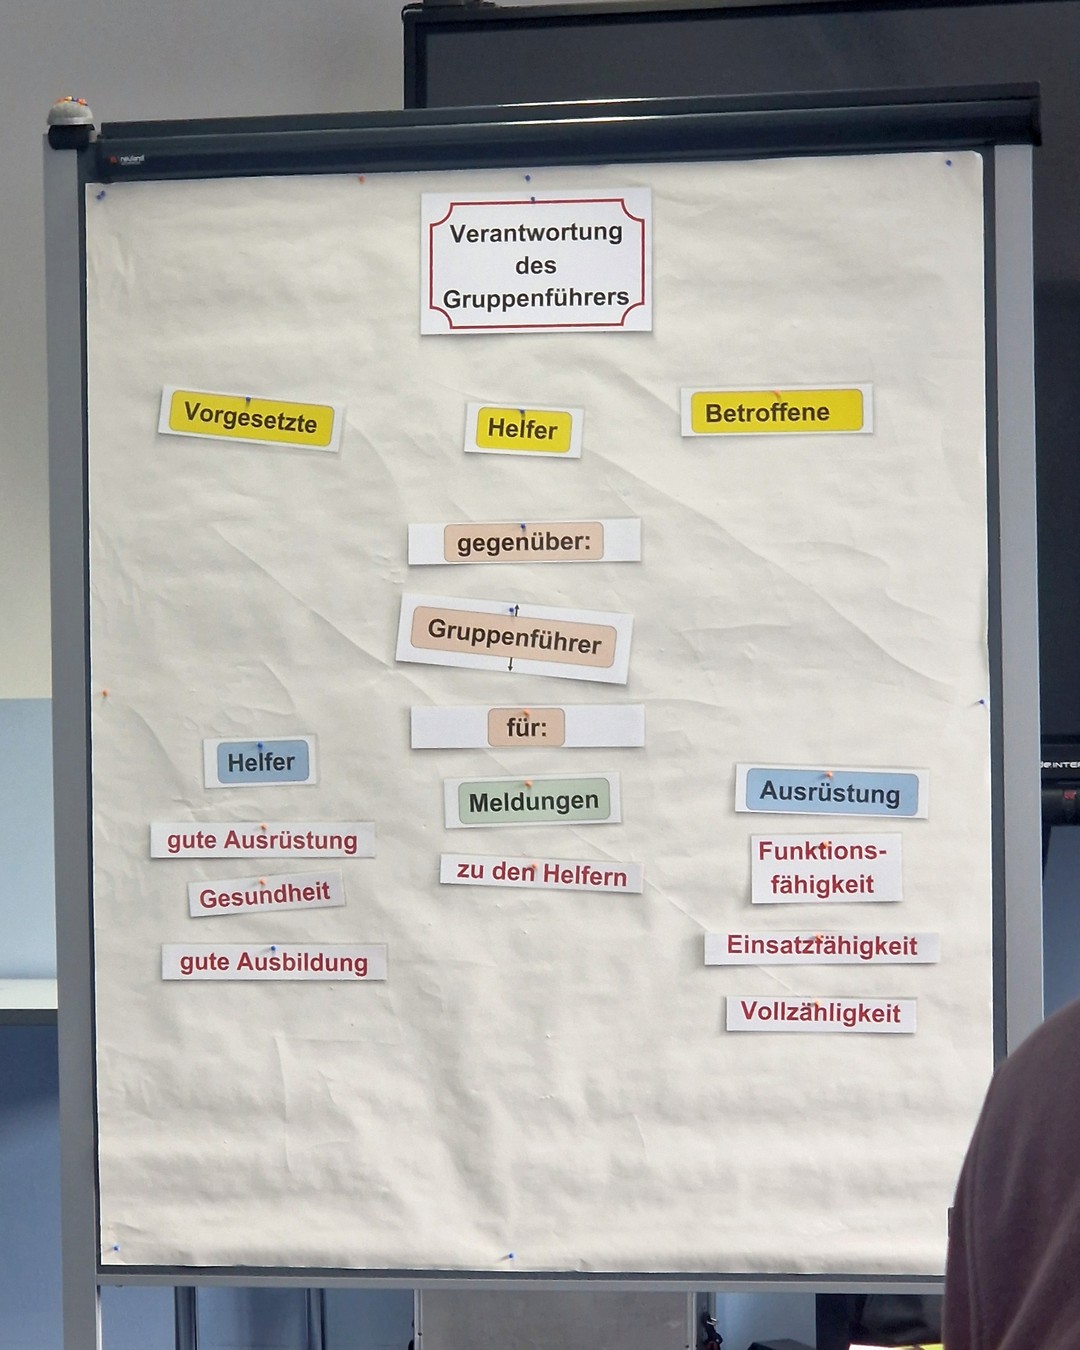 neuland
Verantwortung
des
Gruppenführers
Vorgesetzte
Helfer
Betroffene
gegenüber:
Gruppenführer
für:
Helfer
gute Ausrüstung
Gesundheit
gute Ausbildung
Meldungen
zu den Helfern
Ausrüstung
Funktions-
fähigkeit
Einsatzfähigkeit
Vollzähligkeit